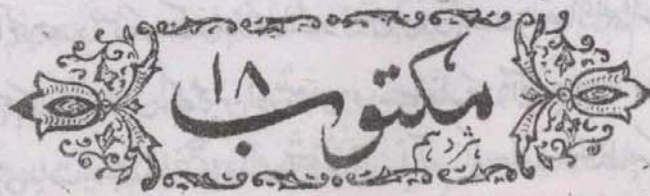 مکتوب ۱۸
ہژدہم